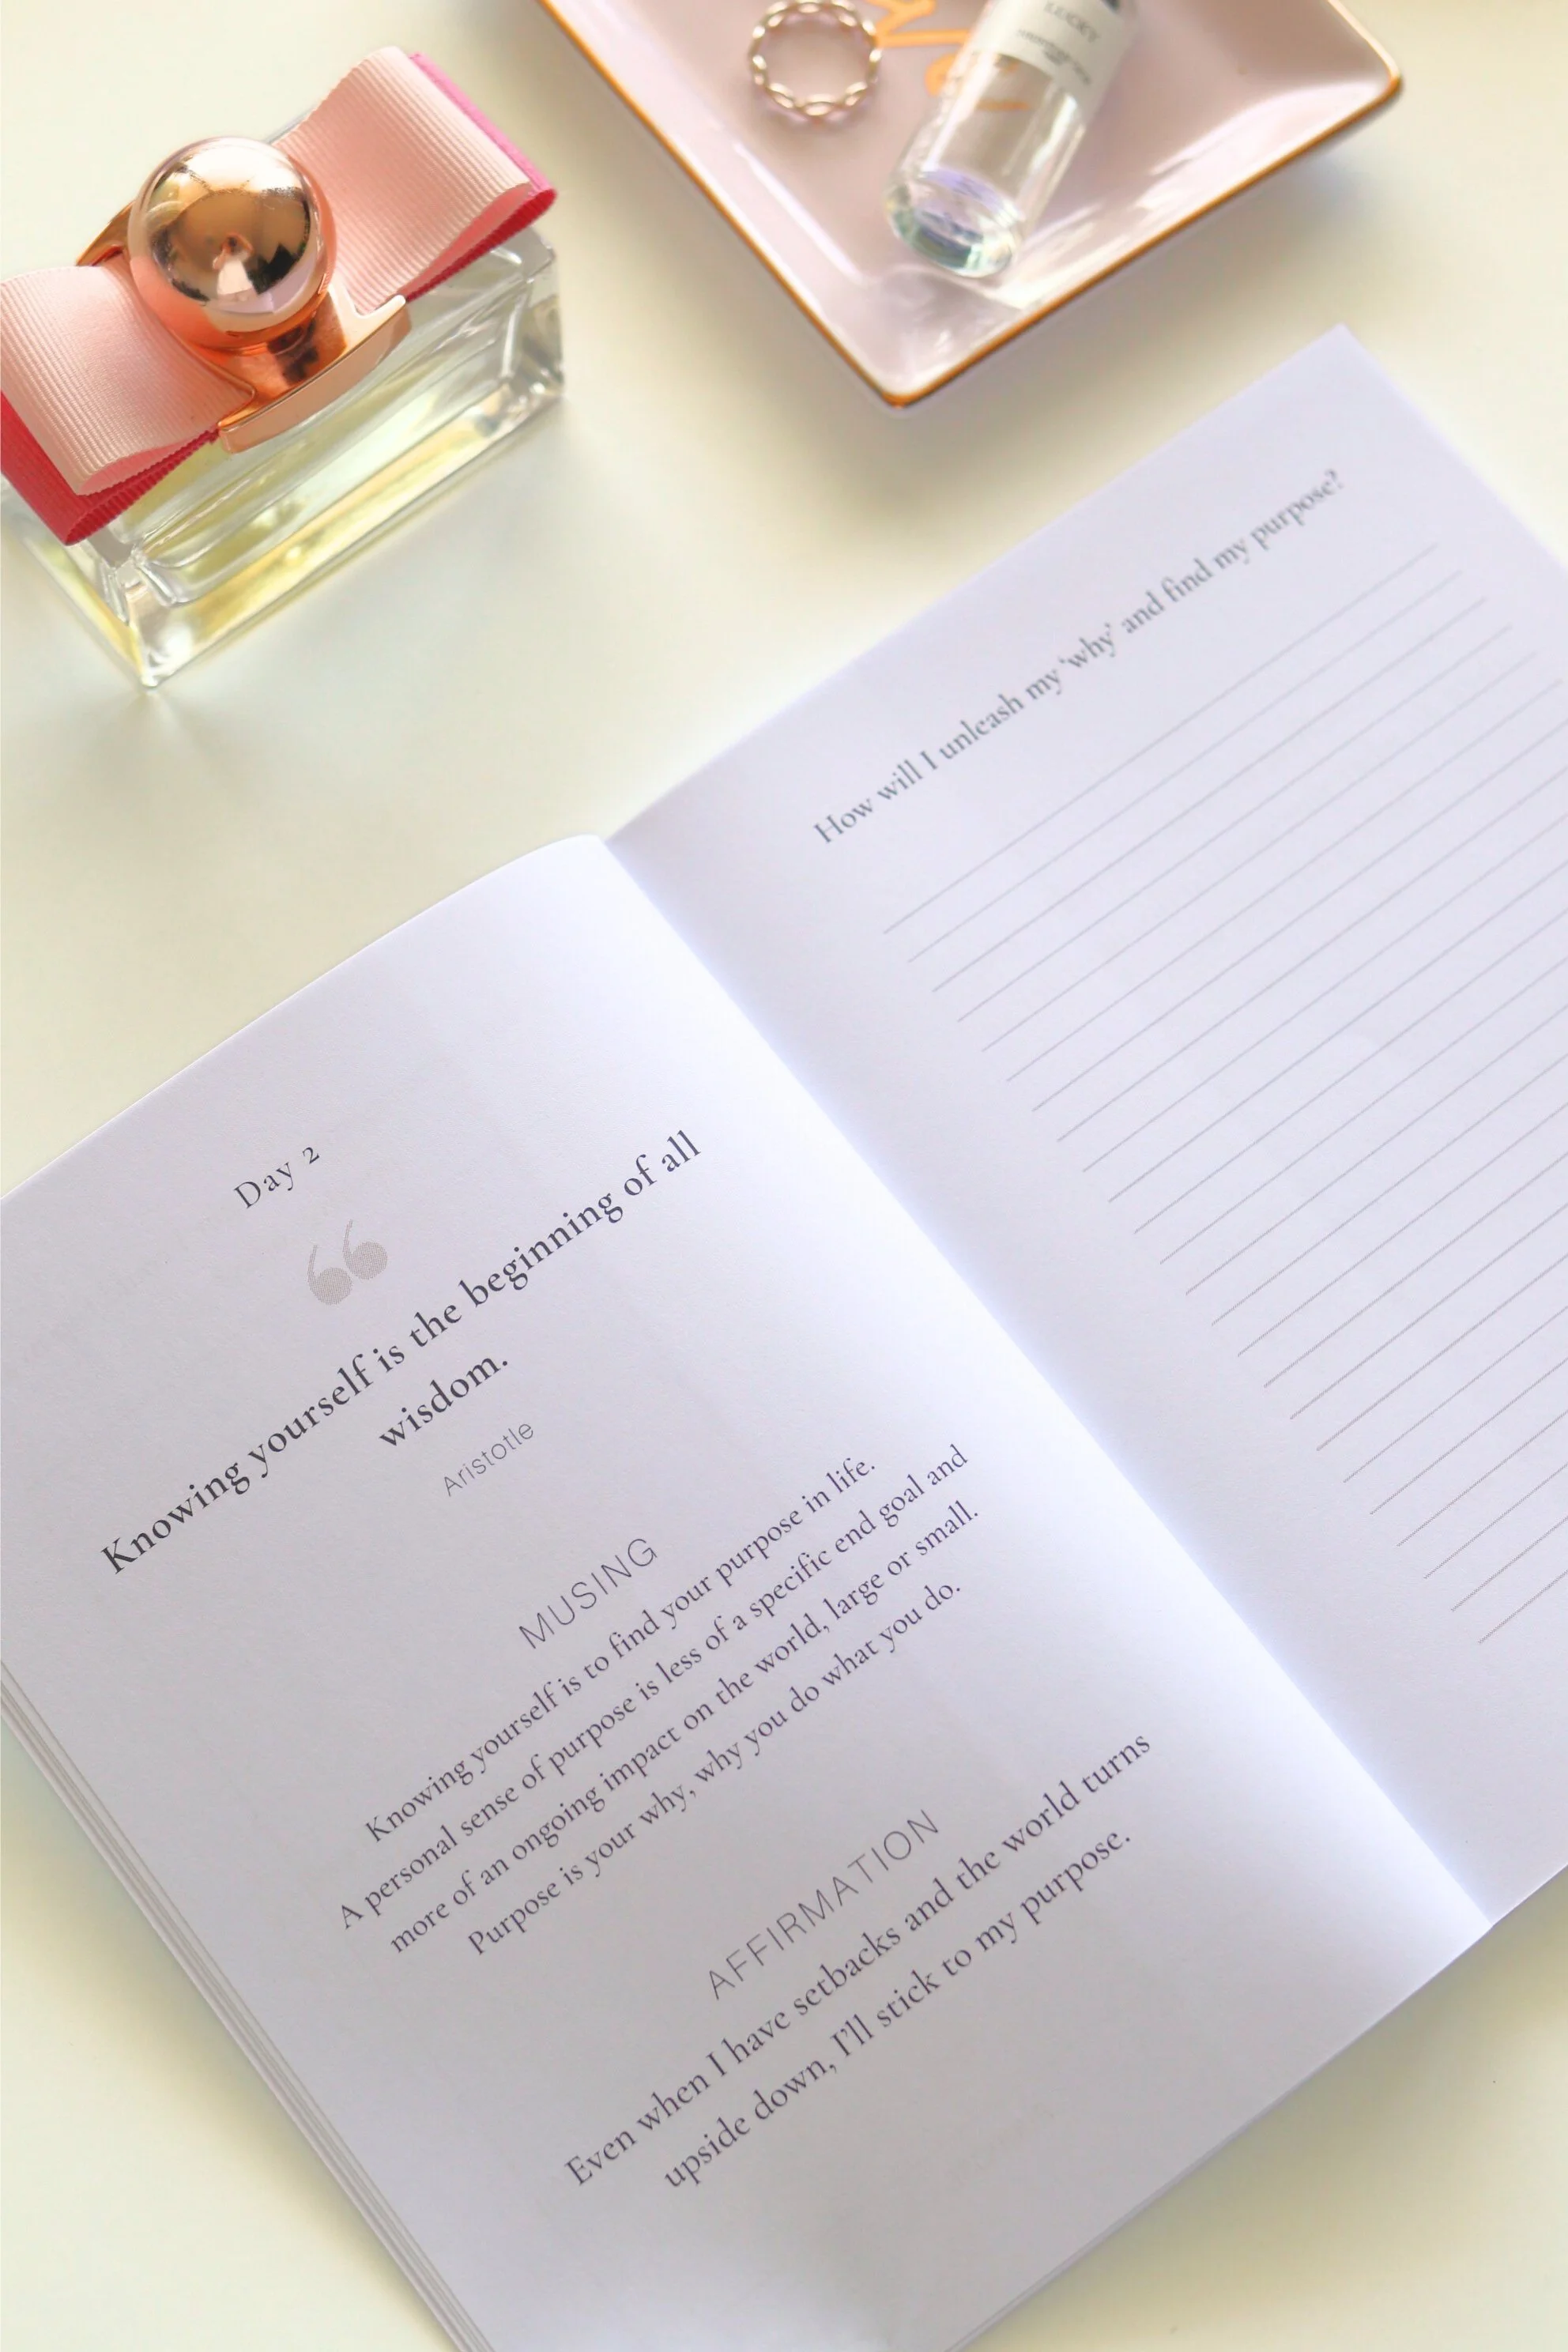 LUCKY
Day 2
“
Knowing yourself is the beginning of all
wisdom.
Aristotle
MUSING
Knowing yourself is to find your purpose in life.
A personal sense of purpose is less of a specific end goal and
more of an ongoing impact on the world, large or small.
Purpose is your why, why you do what you do.
AFFIRMATION
Even when I have setbacks and the world turns
upside down, I’ll stick to my purpose.
How will I unleash my ‘why’ and find my purpose?